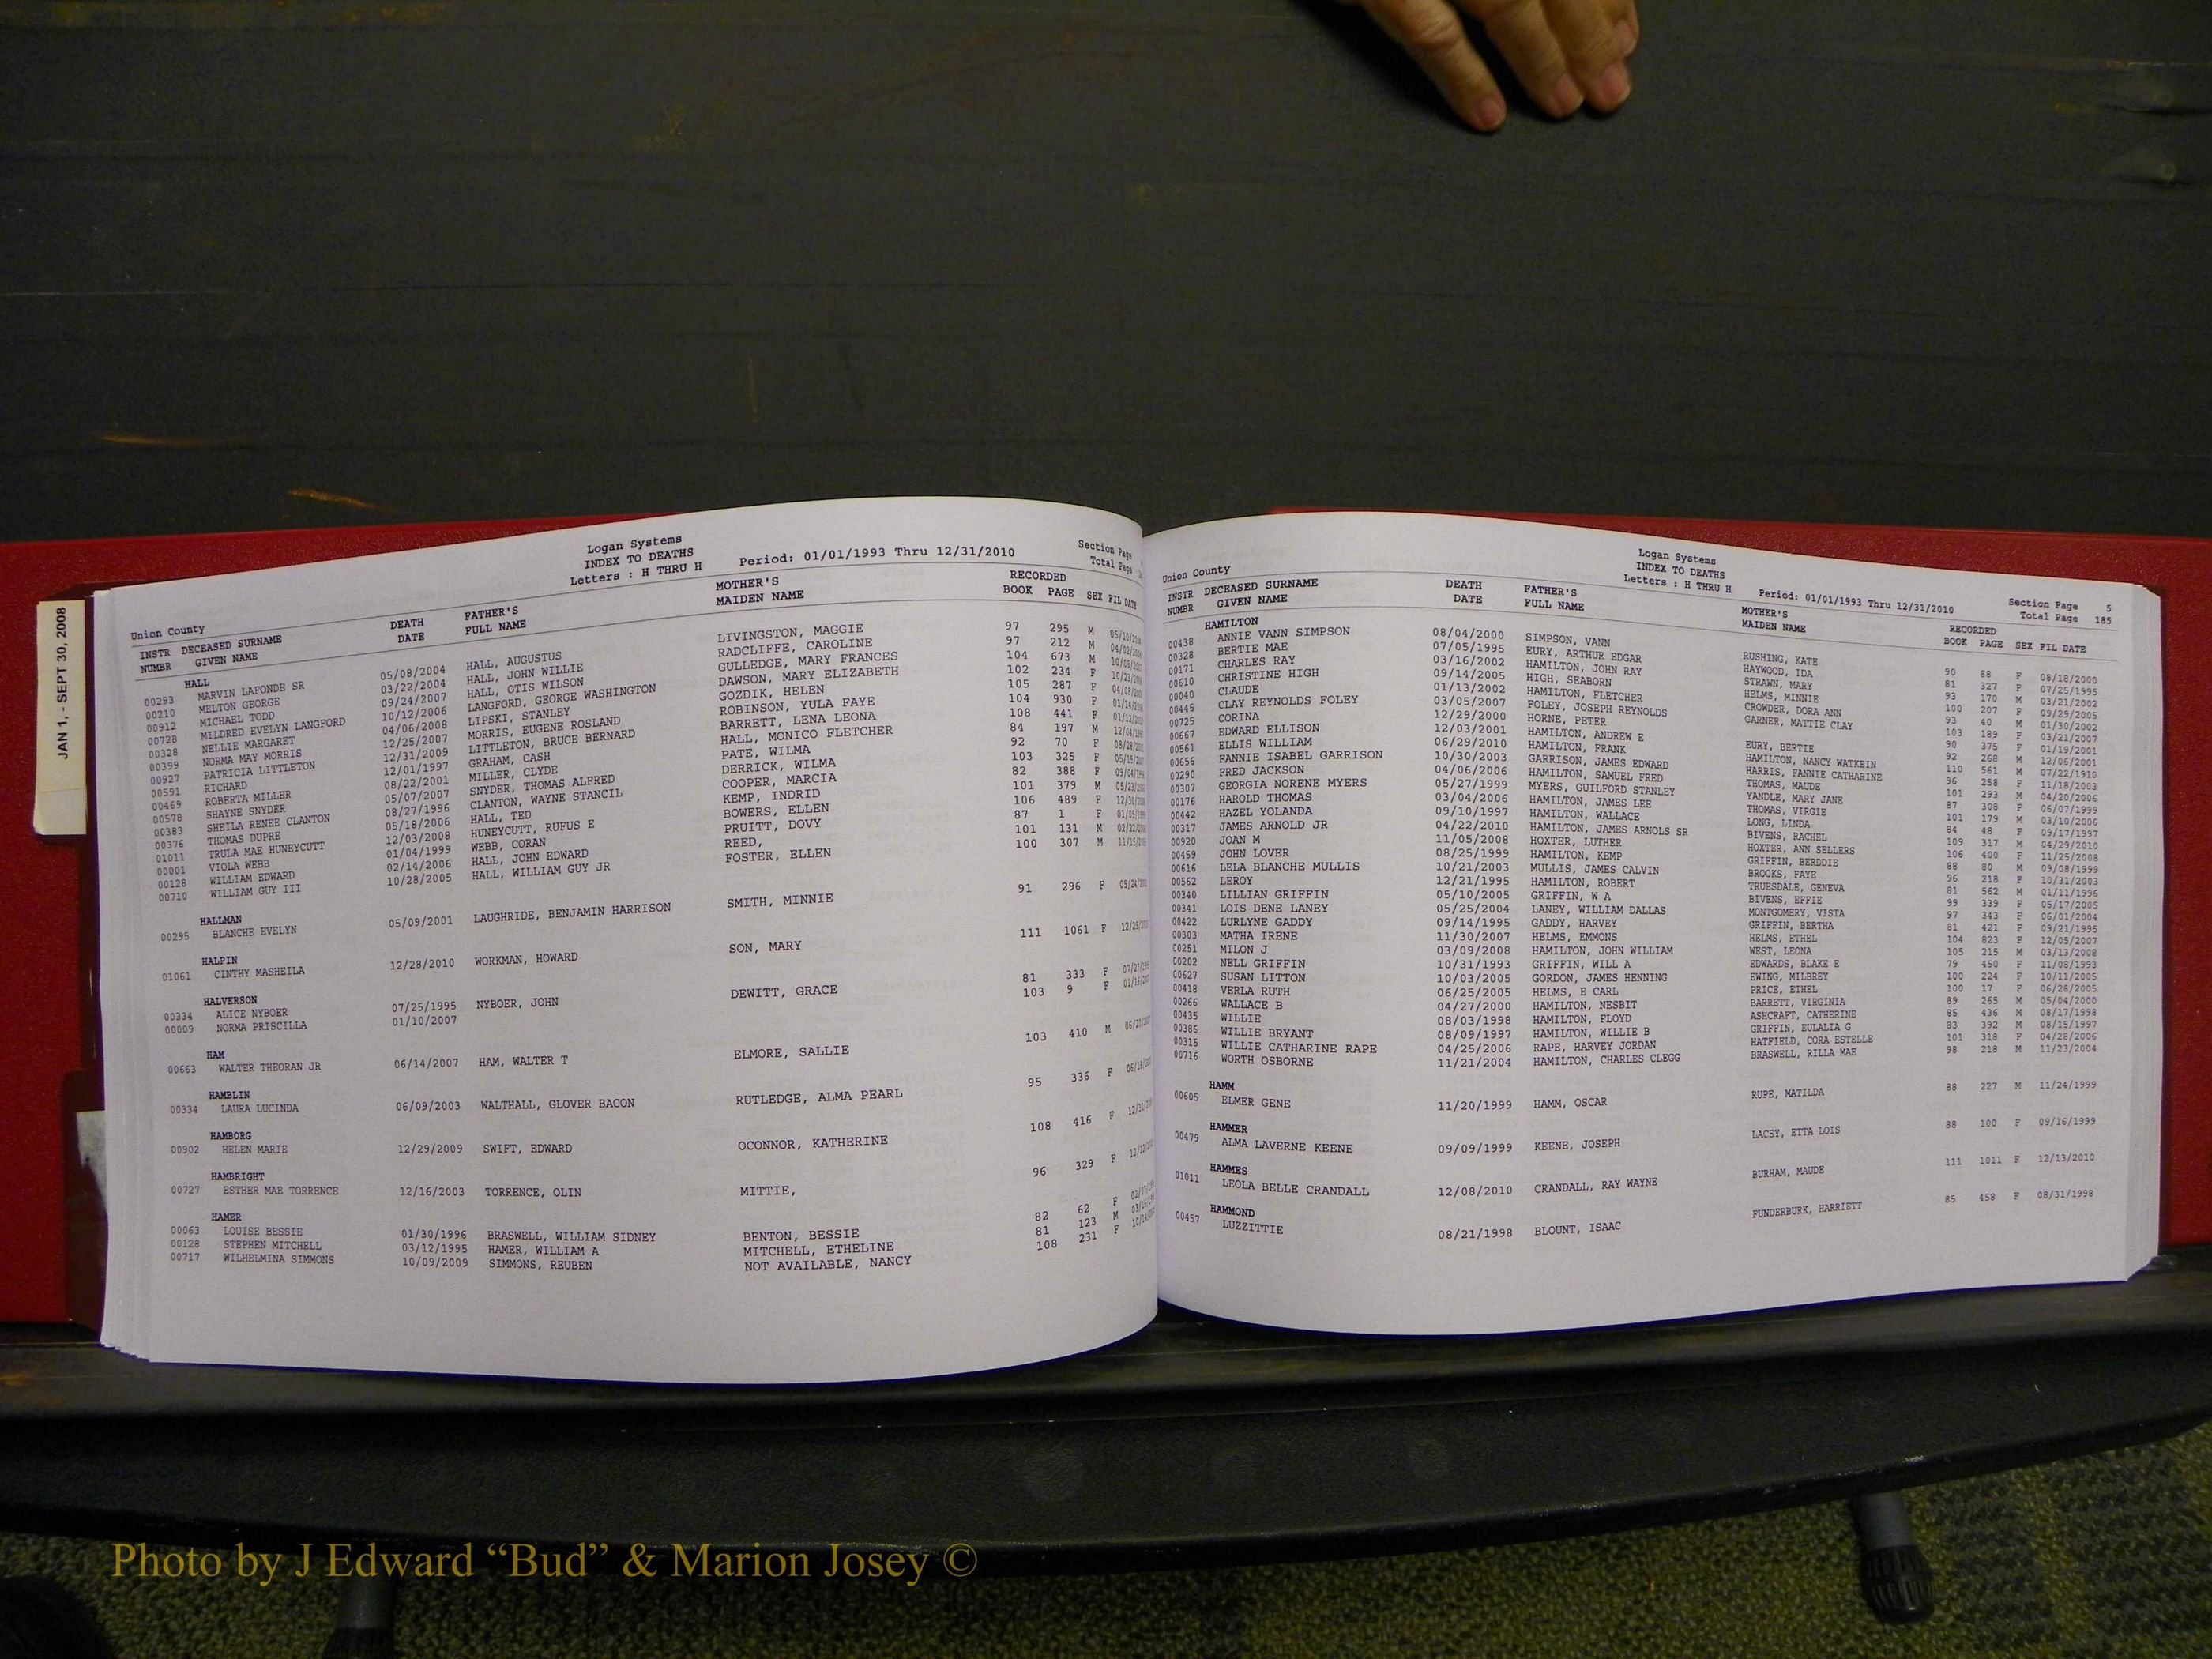 JAN 1, - SEPT 30, 2008
Logan Systems
INDEX TO DEATHS
Letters : H THRU H
Period: 01/01/1993 Thru 12/31/2010
Section Page
Total Page
Union County
INSTR NUMBR DECEASED SURNAME GIVEN NAME DEATH DATE FATHER'S FULL NAME MOTHER'S MAIDEN NAME RECORDED BOOK PAGE SEX FIL DATE
HALL
00293 MARVIN LAFONDE SR 05/08/2004 HALL, AUGUSTUS LIVINGSTON, MAGGIE 97 295 M
00210 MELTON GEORGE 03/22/2004 HALL, JOHN WILLIE RADCLIFFE, CAROLINE 97 212 M
00912 MICHAEL TODD 09/24/2007 HALL, OTIS WILSON GULLEDGE, MARY FRANCES 104 673 M
00728 MILDRED EVELYN LANGFORD 10/12/2006 LANGFORD, GEORGE WASHINGTON DAWSON, MARY ELIZABETH 102 234 F
00328 NELLIE MARGARET 04/06/2008 LIPSKI, STANLEY GOZDIK, HELEN 105 287 F
00399 NORMA MAY MORRIS 12/25/2007 MORRIS, EUGENE ROSLAND ROBINSON, YULA FAYE 104 930 F
00927 PATRICIA LITTLETON 12/31/2009 LITTLETON, BRUCE BERNARD BARRETT, LENA LEONA 108 441 F
00591 RICHARD 12/01/1997 GRAHAM, CASH HALL, MONICO FLETCHER 84 197 M
00469 ROBERTA MILLER 08/22/2001 MILLER, CLYDE PATE, WILMA 92 70 F
00578 SHAYNE SNYDER 05/07/2007 SNYDER, THOMAS ALFRED DERRICK, WILMA 103 325 F
00383 SHEILA RENEE CLANTON 08/27/1996 CLANTON, WAYNE STANCIL COOPER, MARCIA 82 388 F
00376 THOMAS DUPRE 05/18/2006 HALL, TED KEMP, INDRID 101 379 M
01011 TRULA MAE HUNEYCUTT 12/03/2008 HUNEYCUTT, RUFUS E BOWERS, ELLEN 106 489 F
00001 VIOLA WEBB 01/04/1999 WEBB, CORAN PRUITT, DOVY 87 1 F
00128 WILLIAM EDWARD 02/14/2006 HALL, JOHN EDWARD REED, 101 131 M
00710 WILLIAM GUY III 10/28/2005 HALL, WILLIAM GUY JR FOSTER, ELLEN 100 307 M
HALLMAN
00295 BLANCHE EVELYN 05/09/2001 LAUGHRIDE, BENJAMIN HARRISON SMITH, MINNIE 91 296 F
HALPIN
01061 CINTHY MASHEILA 12/28/2010 WORKMAN, HOWARD SON, MARY 111 1061 F
HALVERSON
00334 ALICE NYBOER 07/25/1995 NYBOER, JOHN DEWITT, GRACE 81 333 F
00009 NORMA PRISCILLA 01/10/2007 103 9 F
HAM
00663 WALTER THEORAN JR 06/14/2007 HAM, WALTER T ELMORE, SALLIE 103 410 M
HAMBLIN
00334 LAURA LUCINDA 06/09/2003 WALTHALL, GLOVER BACON RUTLEDGE, ALMA PEARL 95 336 F
HAMBORG
00902 HELEN MARIE 12/29/2009 SWIFT, EDWARD OCONNOR, KATHERINE 108 416 F
HAMBRIGHT
00727 ESTHER MAE TORRENCE 12/16/2003 TORRENCE, OLIN MITTIE, 96 329 F
HAMER
00063 LOUISE BESSIE 01/30/1996 BRASWELL, WILLIAM SIDNEY BENTON, BESSIE 82 62 F
00128 STEPHEN MITCHELL 03/12/1995 HAMER, WILLIAM A MITCHELL, ETHELINE 81 123 M
00717 WILHELMINA SIMMONS 10/09/2009 SIMMONS, REUBEN NOT AVAILABLE, NANCY 108 231 F
Logan Systems
INDEX TO DEATHS
Letters : H THRU H
Period: 01/01/1993 Thru 12/31/2010
Section Page 5
Total Page 185
Union County
INSTR NUMBR DECEASED SURNAME GIVEN NAME DEATH DATE FATHER'S FULL NAME MOTHER'S MAIDEN NAME RECORDED BOOK PAGE SEX FIL DATE
HAMILTON
00438 ANNIE VANN SIMPSON 08/04/2000 SIMPSON, VANN RUSHING, KATE 90 88 F 08/18/2000
00328 BERTIE MAE 07/05/1995 EURY, ARTHUR EDGAR HAYWOOD, IDA 81 327 F 07/25/1995
00171 CHARLES RAY 03/16/2002 HAMILTON, JOHN RAY STRAWN, MARY 93 170 M 03/21/2002
00610 CHRISTINE HIGH 09/14/2005 HIGH, SEABORN HELMS, MINNIE 100 207 F 09/29/2005
00040 CLAUDE 01/13/2002 HAMILTON, FLETCHER CROWDER, DORA ANN 93 40 M 01/30/2002
00445 CLAY REYNOLDS FOLEY 03/05/2007 FOLEY, JOSEPH REYNOLDS GARNER, MATTIE CLAY 103 189 F 03/21/2007
00725 CORINA 12/29/2000 HORNE, PETER 90 375 F 01/19/2001
00667 EDWARD ELLISON 12/03/2001 HAMILTON, ANDREW E EURY, BERTIE 92 268 M 12/06/2001
00561 ELLIS WILLIAM 06/29/2010 HAMILTON, FRANK HAMILTON, NANCY WATKEIN 110 561 M 07/22/1910
00656 FANNIE ISABEL GARRISON 10/30/2003 GARRISON, JAMES EDWARD HARRIS, FANNIE CATHARINE 96 258 F 11/18/2003
00290 FRED JACKSON 04/06/2006 HAMILTON, SAMUEL FRED THOMAS, MAUDE 101 293 M 04/20/2006
00307 GEORGIA NORENE MYERS 05/27/1999 MYERS, GUILFORD STANLEY YANDLE, MARY JANE 87 308 F 06/07/1999
00176 HAROLD THOMAS 03/04/2006 HAMILTON, JAMES LEE THOMAS, VIRGIE 101 179 M 03/10/2006
00442 HAZEL YOLANDA 09/10/1997 HAMILTON, WALLACE LONG, LINDA 84 48 F 09/17/1997
00317 JAMES ARNOLD JR 04/22/2010 HAMILTON, JAMES ARNOLS SR BIVENS, RACHEL 109 317 M 04/29/2010
00920 JOAN M 11/05/2008 HOXTER, LUTHER HOXTER, ANN SELLERS 106 400 F 11/25/2008
00459 JOHN LOVER 08/25/1999 HAMILTON, KEMP GRIFFIN, BERDDIE 88 80 M 09/08/1999
00616 LELA BLANCHE MULLIS 10/21/2003 MULLIS, JAMES CALVIN BROOKS, FAYE 96 218 F 10/31/2003
00562 LEROY 12/21/1995 HAMILTON, ROBERT TRUESDALE, GENEVA 81 562 M 01/11/1996
00340 LILLIAN GRIFFIN 05/10/2005 GRIFFIN, W A BIVENS, EFFIE 99 339 F 05/17/2005
00341 LOIS DENE LANEY 05/25/2004 LANEY, WILLIAM DALLAS MONTGOMERY, VISTA 97 343 F 06/01/2004
00422 LURLYNE GADDY 09/14/1995 GADDY, HARVEY GRIFFIN, BERTHA 81 421 F 09/21/1995
00303 MATHA IRENE 11/30/2007 HELMS, EMMONS HELMS, ETHEL 104 823 F 12/05/2007
00251 MILON J 03/09/2008 HAMILTON, JOHN WILLIAM WEST, LEONA 105 215 M 03/13/2008
00202 NELL GRIFFIN 10/31/1993 GRIFFIN, WILL A EDWARDS, BLAKE E 79 450 F 11/08/1993
00627 SUSAN LITTON 10/03/2005 GORDON, JAMES HENNING EWING, MILBREY 100 224 F 10/11/2005
00418 VERLA RUTH 06/25/2005 HELMS, E CARL PRICE, ETHEL 100 17 F 06/28/2005
00266 WALLACE B 04/27/2000 HAMILTON, NESBIT BARRETT, VIRGINIA 89 265 M 05/04/2000
00435 WILLIE 08/03/1998 HAMILTON, FLOYD ASHCRAFT, CATHERINE 85 436 M 08/17/1998
00386 WILLIE BRYANT 08/09/1997 HAMILTON, WILLIE B GRIFFIN, EULALIA G 83 392 M 08/15/1997
00315 WILLIE CATHARINE RAPE 04/25/2006 RAPE, HARVEY JORDAN HATFIELD, CORA ESTELLE 101 318 F 04/28/2006
00716 WORTH OSBORNE 11/21/2004 HAMILTON, CHARLES CLEGG BRASWELL, RILLA MAE 98 218 M 11/23/2004
HAMM
00605 ELMER GENE 11/20/1999 HAMM, OSCAR RUPE, MATILDA 88 227 M 11/24/1999
HAMMER
00479 ALMA LAVERNE KEENE 09/09/1999 KEENE, JOSEPH LACEY, ETTA LOIS 88 100 F 09/16/1999
HAMMES
01011 LEOLA BELLE CRANDALL 12/08/2010 CRANDALL, RAY WAYNE BURHAM, MAUDE 111 1011 F 12/13/2010
HAMMOND
00457 LUZZITTIE 08/21/1998 BLOUNT, ISAAC FUNDERBURK, HARRIETT 85 458 F 08/31/1998
Photo by J Edward “Bud” & Marion Josey ©